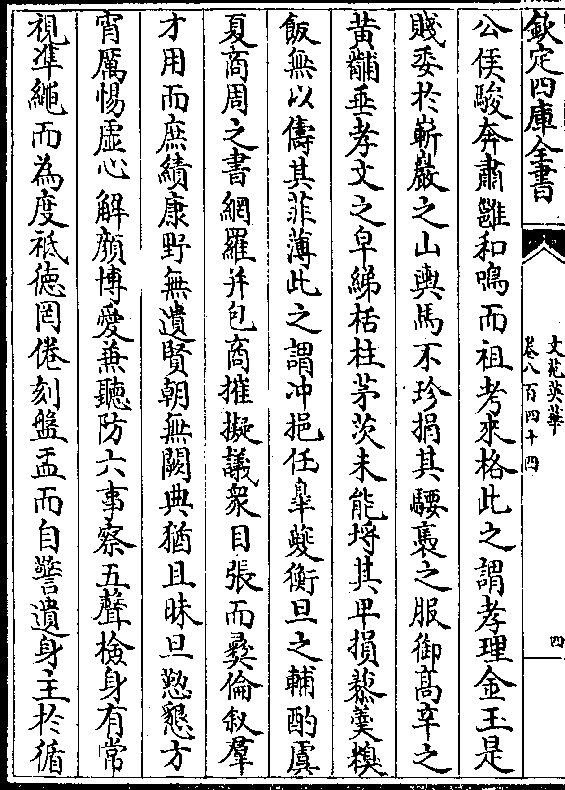 欽定四庫全書
文苑英華
卷八百四十四
四
公侯駿奔肅雝和鳴而祖考來格此之謂孝理金玉是
賤委於嶄巖之山輿馬不珍捐其騕褭之服御高辛之
黄黼垂孝文之皁綈栝柱茅茨未能埒其卑損藜羹糗
飯無以儔其菲薄此之謂冲挹任臯夔衡旦之輔酌虞
夏商周之書網羅并包商摧擬議衆目張而彛倫叙羣
才用而庶績康野無遺賢朝無闕典猶且昧旦懃懇方
宵厲惕虚心解顔博愛兼聽防六事察五聲檢身有常
視準繩而為度祗德罔倦刻盤盂而自警遺身主於循